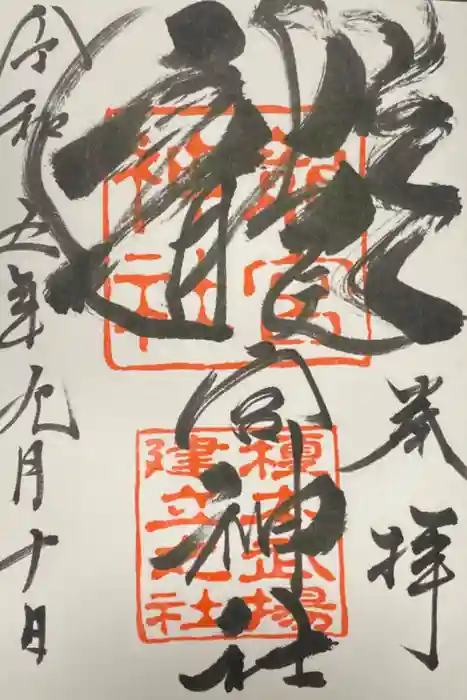 奉拝
龍宮神社
令和五年九月十日
龍宮
神社
榎本武揚
建立之社